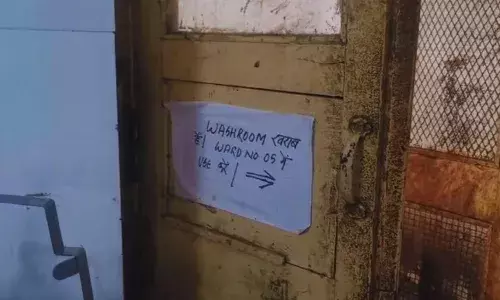 WASHROOM खराब
है। WARD NO 05 में
USE करें। ⇒